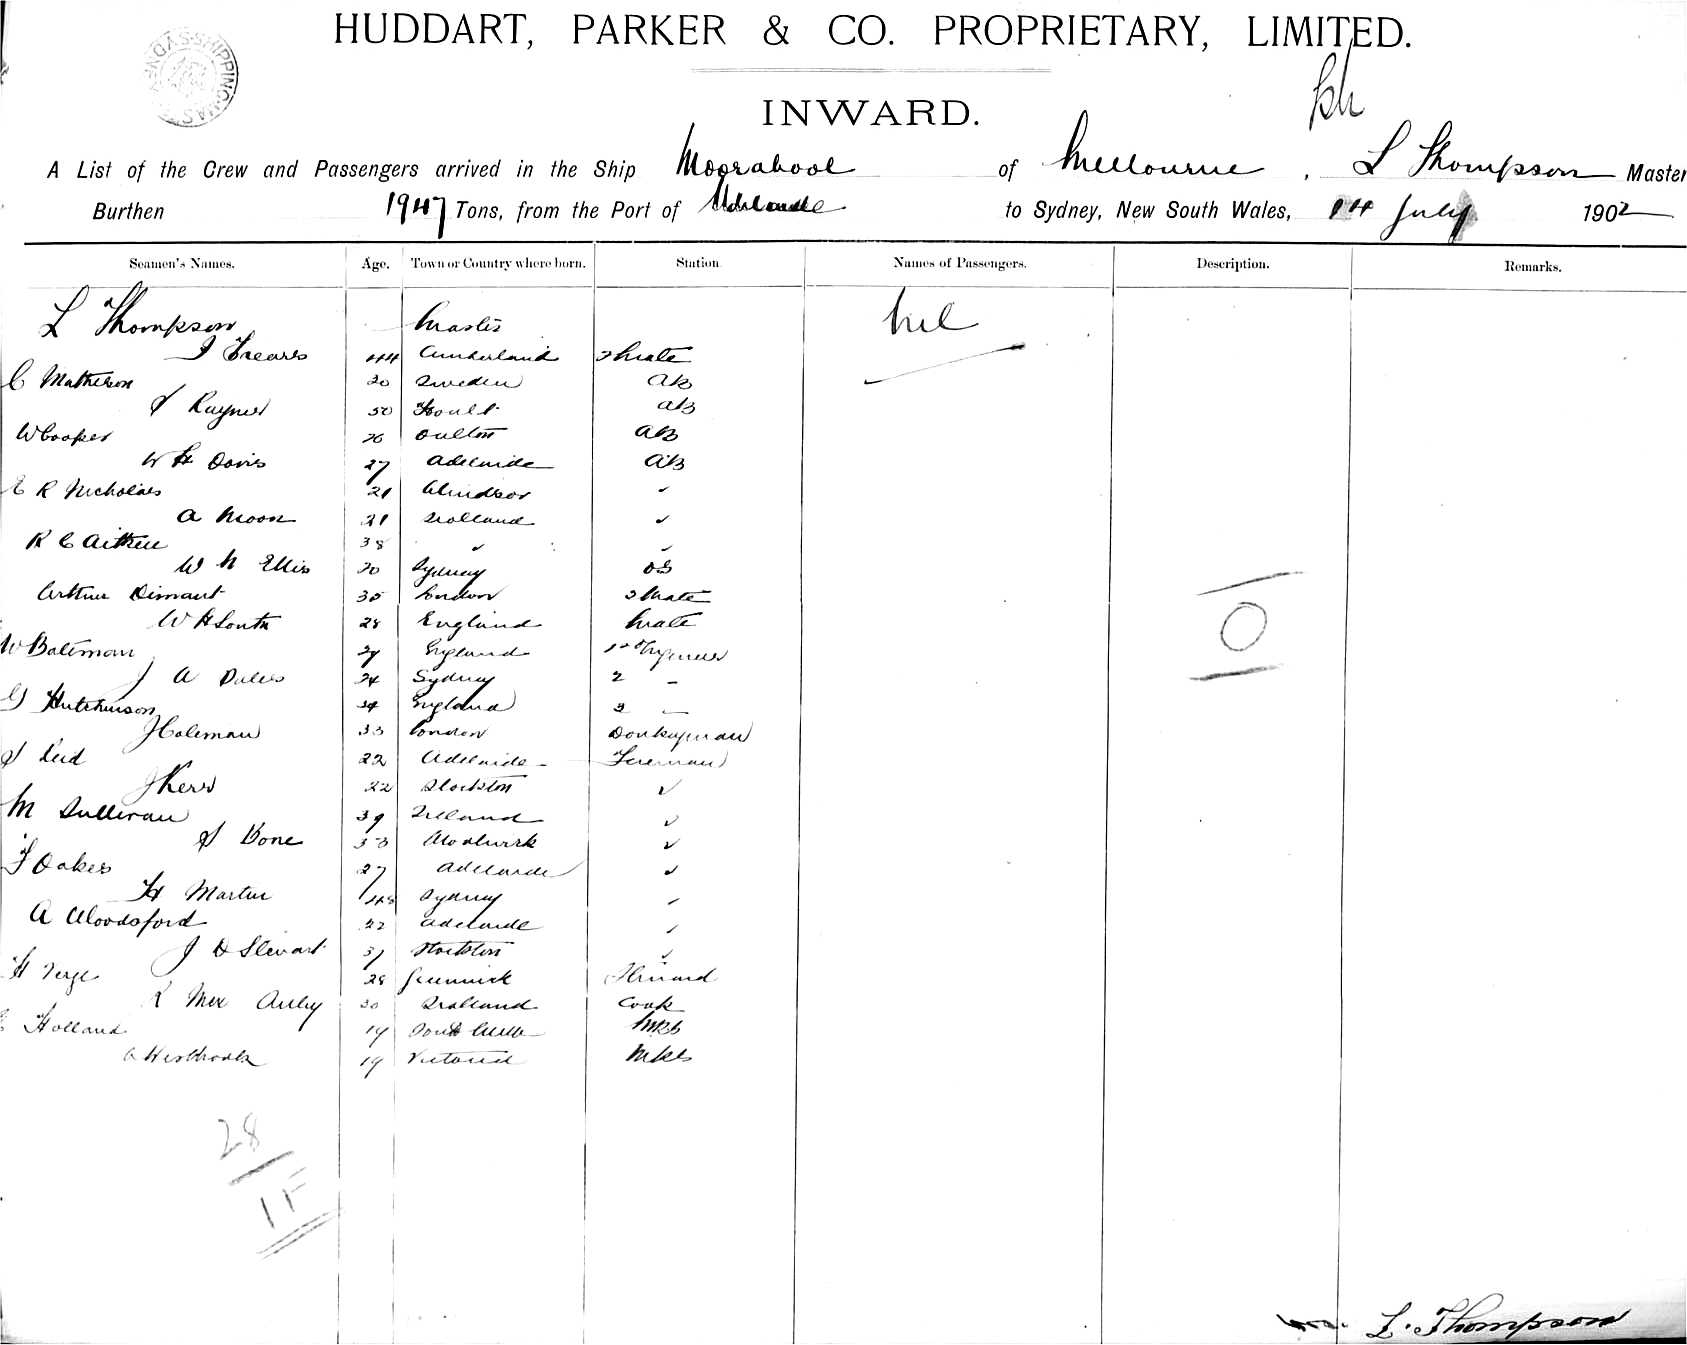 HUDDART, PARKER & CO. PROPRIETARY, LIMITED.
INWARD.
A List of the Crew and Passengers arrived in the Ship Moorabool of Melbourne, L Thompson Master
Burthen 1947 Tons, from the Port of Adelaide to Sydney, New South Wales, 14 July 1902
Seamen's Names. Age. Town or Country where born. Station Names of Passengers. Description. Remarks.
L Thompson Master nil
J Freares 44 Cumberland 2 Mate
C Matheson 30 Sweden AB
J Rayner 50 AB
W Cooper 26 Oulton AB
W H Davis 27 Adelaide AB
E R Nicholas 21 Windsor ✓
A Moon 21 Scotland ✓
R C Aitken 38 ✓ ✓
W N Ellis 20 Sydney OS
Arthur Dimant 35 London 3 Mate
W H South 28 England Mate
W Bateman England 1st Engineer
J A Dales 24 Sydney 2 -
G Hutchinson 24 England 3 -
J Coleman 33 London Donkeyman
J Reid 22 Adelaide Fireman
J Kerr 22 Stockton ✓
M Sullivan 39 Ireland ✓
J Bone 33 Woolwich ✓
F Oakes 27 Adelaide ✓
H Martin 48 Sydney ✓
A Woodsford 22 Adelaide ✓
J D Stewart 37 Stockton ✓
H Verge 28 Greenwich Steward
R Mcc Auley 30 Scotland Cook
Holland 19
A Westbrook 19 Victoria
0
28
1F
L. Thompson